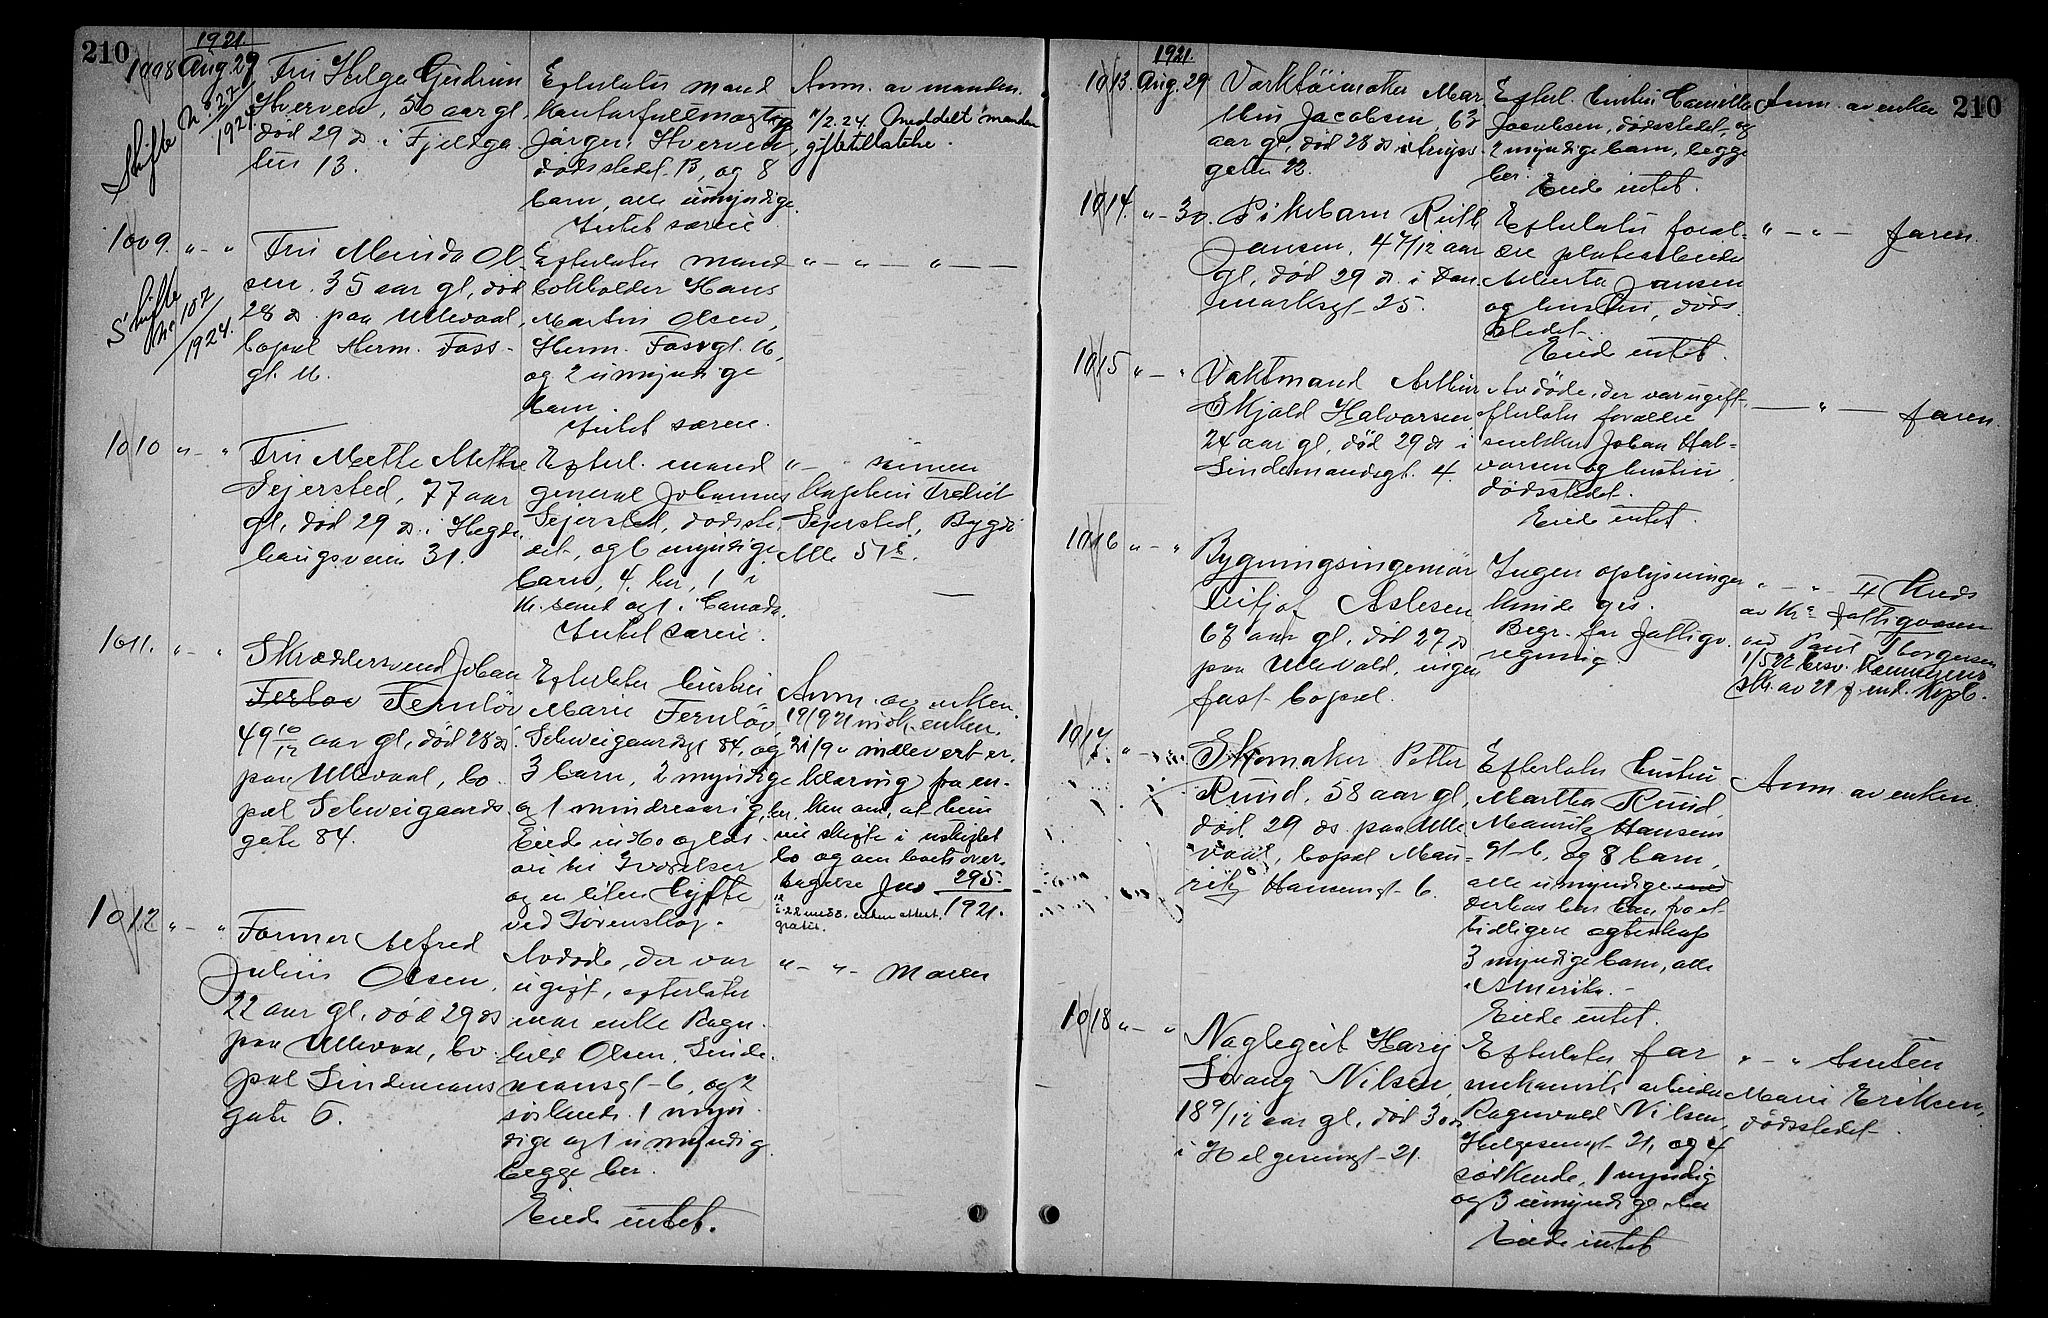 210
1921
1008 Aug. 29 Fru Helga Gudrun
Hverven, 50 aar gl,
død 29 ds. i Fjeldga-
ten 13.
Skifte
N. 827/1924
Efterlater mand
kontorfuldmægtig
Jørgen Hverven
dødsstedet 13, og 8
barn, alle umyndige.
Intet særeie
Anm. av manden.
11/2.24. Meddelt manden
giftetillatelse.
1009. " - " Fru Olsen
sen, 35 aar gl, død
28 ds. paa Ullevaal,
bopæl Herm. Foss-
gt. 16.
Skifte
No 107/1924.
Efterlater mand
bokholder Hans
Martin Olsen,
Herm. Fossgt. 16,
og 2 umyndige
barn.
Intet særeie.
" - " - " - -
1010 " - " Fru Mette
Sejersted, 77 aar
gl, død 29 ds. i Hegde-
haugsveien 31.
Efterl. mand
general Johannes
Sejersted, dødsste-
det, og 6 myndige
barn, 4 her, 1 i
Kr.sand og 1 i Canada.
Intet særeie.
" - sønnen
kaptein Fredrik
Sejersted, Bygdø
Alle
1011. " - " Skræddersvend Johan
Fernløv
49 10/12 aar gl, død 28 ds.
paa Ullevaal, bo-
pæl Schweigaards
gate 84.
Efterlater hustru
Marie Fernløv,
Schweigaardsgt 84, og
3 barn, 2 myndige
og 1 mindreaarig, her.
Eiede
og en liten hytte
ved Sørenskog.
Anm. av enken.
19/9 21 enken.
21/9 " indlevert er-
klæring fra en-
ken om, at hun
vil skifte i uskiftet
bo og om boets over-
tagelse Jno 295
1921.
gratis.
1012 " - " Former Alfred
Julius Olsen,
22 aar gl, død 29 ds
paa Ullevaal, bo-
pæl Lindemans
gate 6.
Avdøde, der var
ugift, efterlater
mor enke Ragn-
hild Olsen, Linde-
mansgt 6, og 2
søskende 1 myn-
dige og 1 umyndig
begge her.
Eiede intet.
" - " - moren
210
1921.
1013 Aug. 29 Værktøimaker Mar-
Jacobsen, 63
aar gl, død 28 ds i
gaten 22.
Efterl. hustru Camilla
Jacobsen, dødsstedet, og
2 myndige barn, begge
her.
Eiede intet.
Anm. av enken
1014. " - 30. Pikebarn Ruth
Jansen, 4 7/12 aar
gl, død 29 ds. i Dan-
marksgt 25.
Efterlater foræl-
dre platearbeider
Jansen
og hustru, døds-
stedet.
Eiede intet.
" - " - faren.
1015 " - " Vaktmand Arthur
Skjold Halvorsen
24 aar gl, død 29 ds i
Lindemansgt. 4.
Avdøde, der var ugift,
efterlater forældre
snekker Johan Hal-
vorsen og hustru,
dødsstedet.
Eiede intet.
- " - faren.
1016 " - " Bygningsingeniør
Fritjof Aslesen
63 aar gl, død 27 ds
paa Ullevold, ingen
fast bopæl.
Ingen oplysninger
kunde gis.
Begr. for fattigv.
regning
" - " - II Kreds
av Kr.a fattigvæsen
ved Paul Thorgersen
1/5 22 besv. Kæmnerens
skr. av 29 f. md.
1017. " - " Skomaker Petter
Ruud, 58 aar gl,
død 29 ds. paa Ulle-
vaal, bopæl Mau-
ritz Hansensgt 6.
Efterlater hustru
Martha Ruud,
Mauritz Hansens
gt 6, og 8 barn,
alle umyndige
derhos har han fra et
tidligere egteskap
3 myndige barn, alle
i Amerika.
Eiede intet.
Anm. av enken.
1018 " - " Naglegut Harij
Svang Nilsen,
18 9/12 aar gl, død 30 ds
i Helgesensgt 21.
Efterlater far
mekanisk arbeider
Ragnvald Nilsen,
Helgesensgt 21, og 4
søskende, 1 myndig
og 3 umyndige, her
Eiede intet
" - " tanten
Marie Eriksen,
dødsstedet